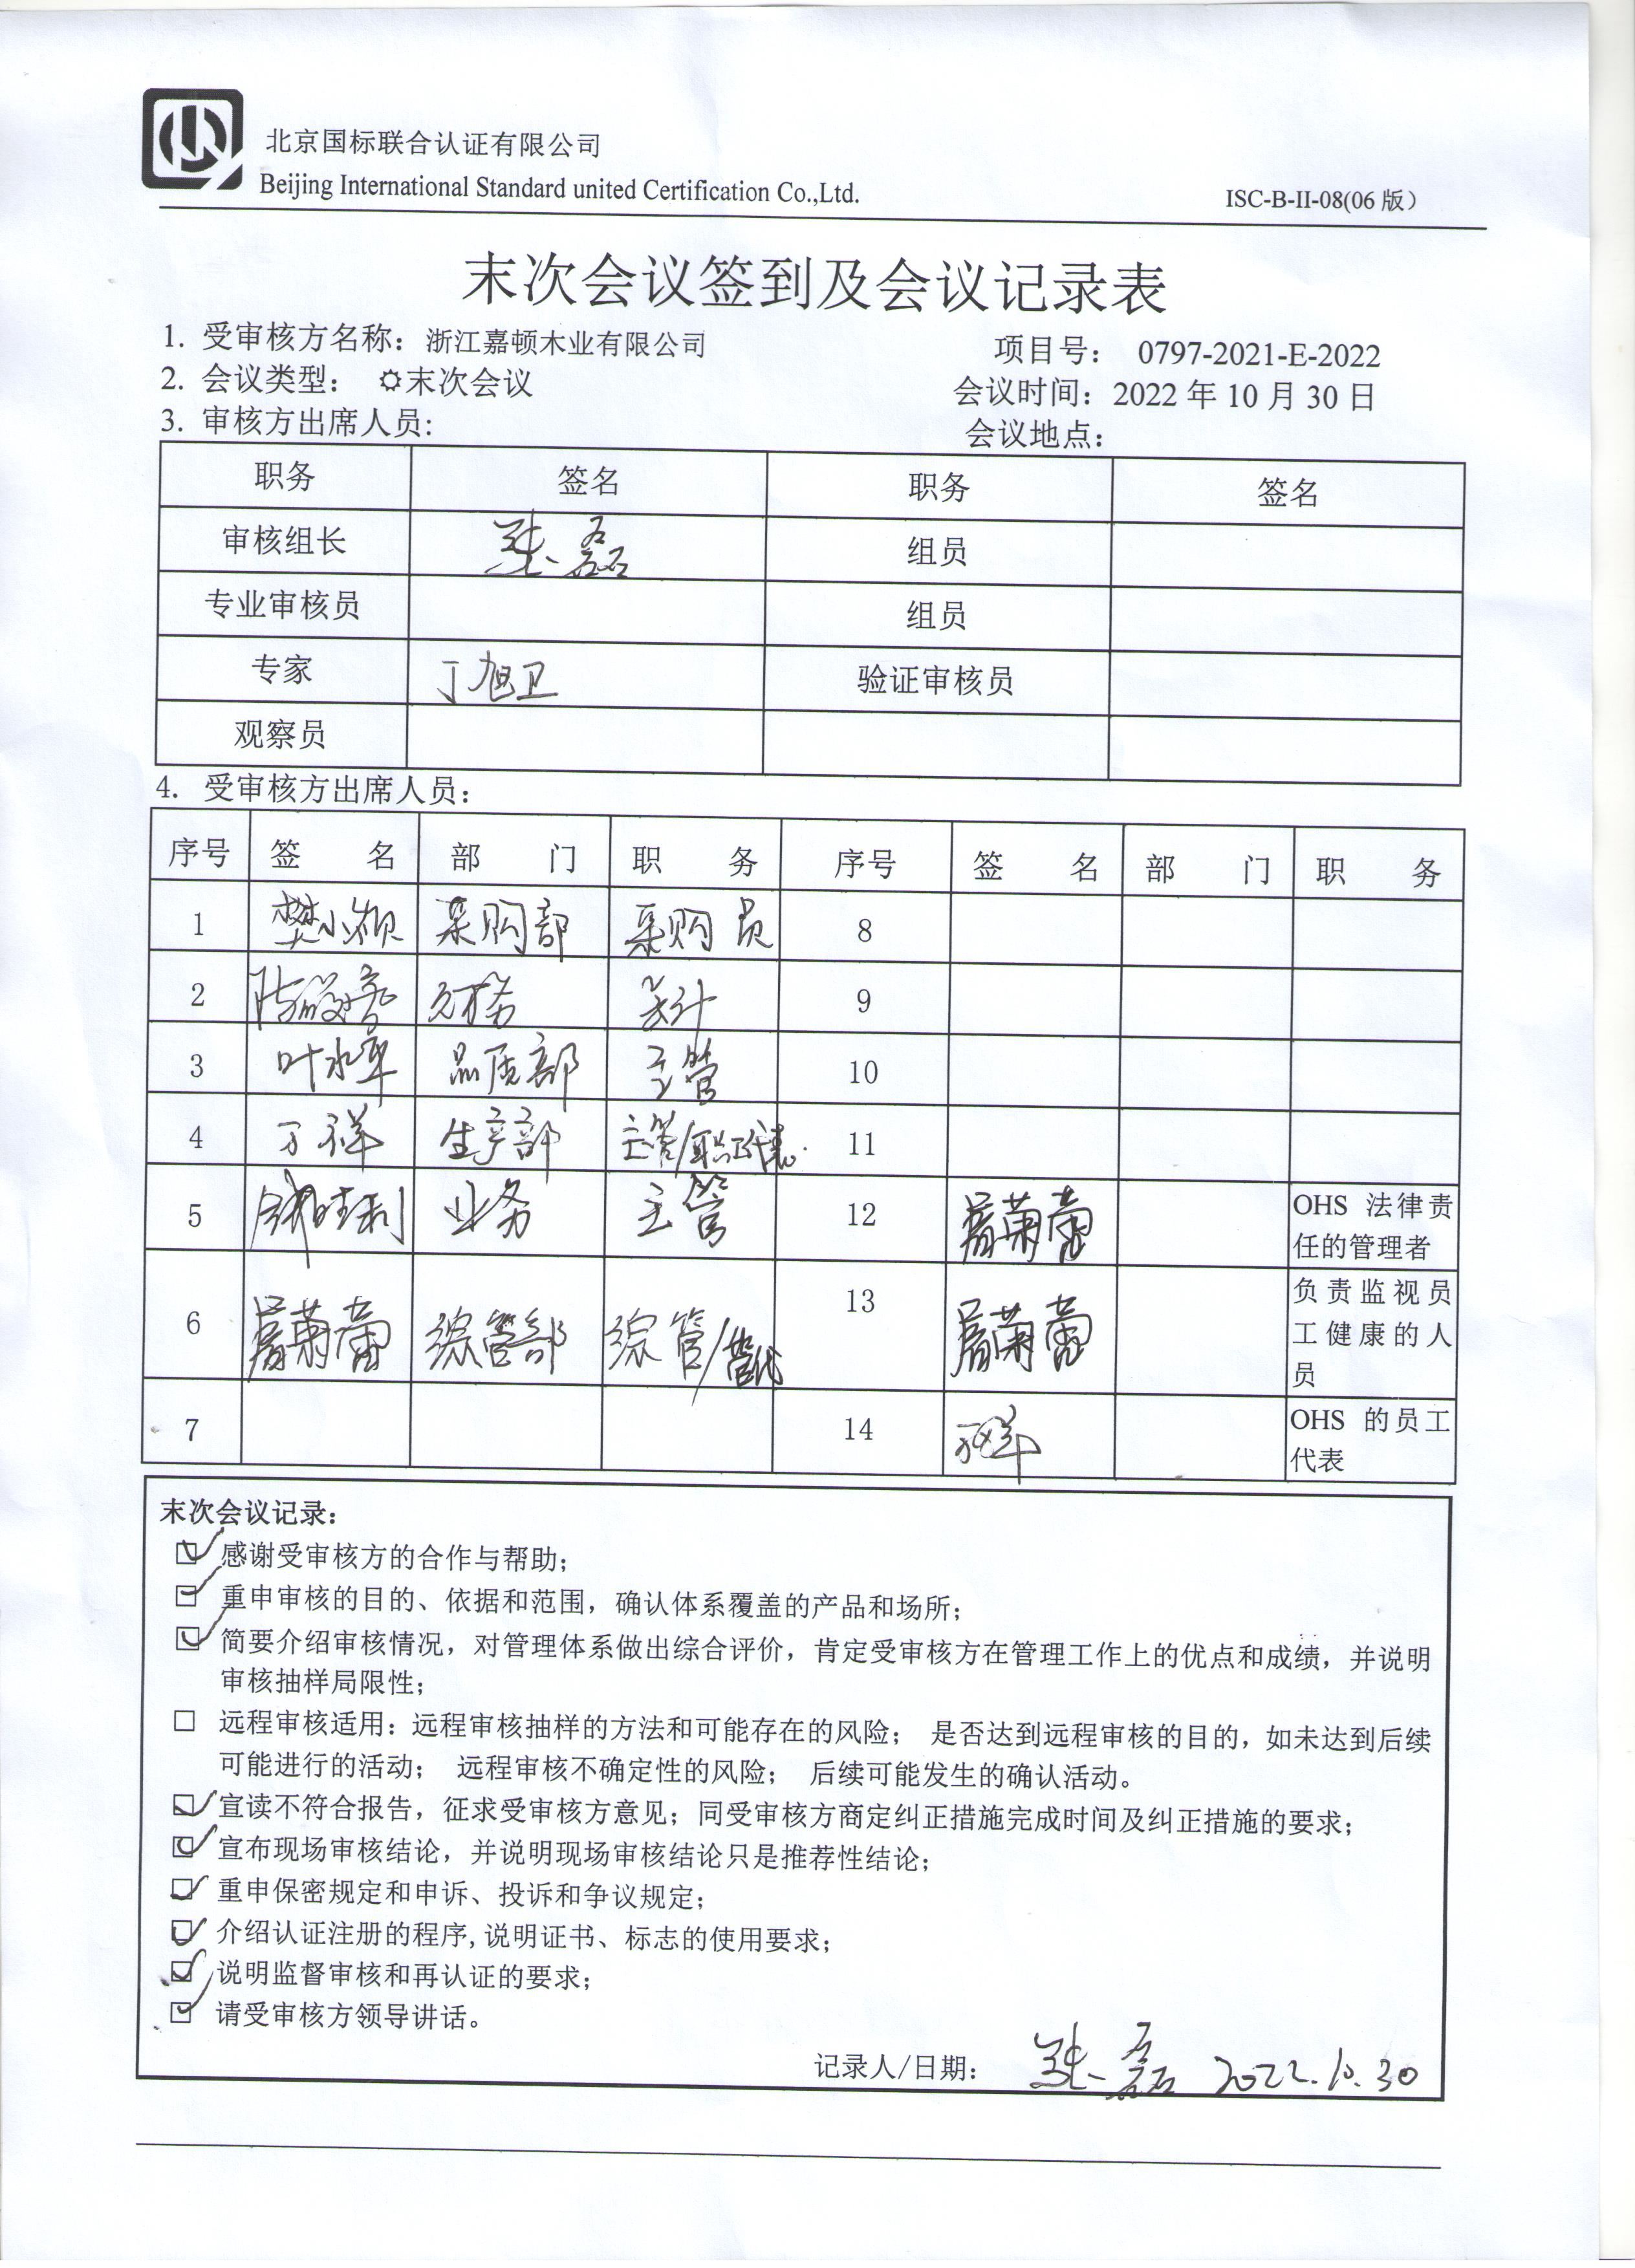 北京国标联合认证有限公司
Beijing International Standard united Certification Co.,Ltd.
ISC-B-II-08(06 版)
末次会议签到及会议记录表
1. 受审核方名称：浙江嘉顿木业有限公司 项目号： 0797-2021-E-2022
2. 会议类型： ☼末次会议 会议时间：2022 年 10 月 30 日
3. 审核方出席人员: 会议地点：
职务 签名 职务 签名
审核组长 张磊 组员
专业审核员 组员
专家 丁旭卫 验证审核员
观察员
4. 受审核方出席人员：
序号 签 名 部 门 职 务 序号 签 名 部 门 职 务
1 樊小顺 采购部 采购员 8
2 财务 会计 9
3 叶水军 品质部 主管 10
4 万祥 生产部 主管/职工代表 11
5 业务 主管 12 OHS 法律责任的管理者
6 综管部 综管/管代 13 负责监视员工健康的人员
7 14 万祥 OHS 的员工代表
末次会议记录：
☑ 感谢受审核方的合作与帮助；
☑ 重申审核的目的、依据和范围，确认体系覆盖的产品和场所；
☑ 简要介绍审核情况，对管理体系做出综合评价，肯定受审核方在管理工作上的优点和成绩，并说明
审核抽样局限性；
☐ 远程审核适用：远程审核抽样的方法和可能存在的风险； 是否达到远程审核的目的，如未达到后续
可能进行的活动； 远程审核不确定性的风险； 后续可能发生的确认活动。
☑ 宣读不符合报告，征求受审核方意见；同受审核方商定纠正措施完成时间及纠正措施的要求；
☑ 宣布现场审核结论，并说明现场审核结论只是推荐性结论；
☑ 重申保密规定和申诉、投诉和争议规定；
☑ 介绍认证注册的程序,说明证书、标志的使用要求；
☑ 说明监督审核和再认证的要求；
☑ 请受审核方领导讲话。
记录人/日期： 张磊 2022.10.30